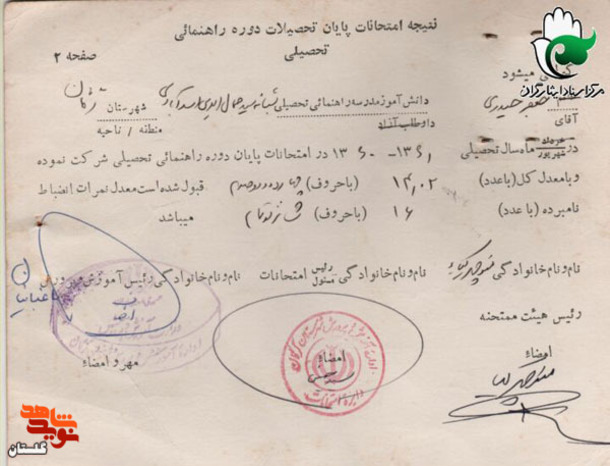 نتیجه امتحانات پایان تحصیلات دوره راهنمائی
تحصیلی
صفحه ۲
مرکز اسناد ایثارگران
میشود
خانم جعفر حیدری
آقای
دانش آموز مدرسه راهنمائی تحصیلی شبانه سید جمال الدین اسدآبادی شهرستان گرگان
داوطلب آزاد
منطقه / ناحیه
در خرداد ماه سال تحصیلی ۱۳۶۱ - ۱۳۶۰ در امتحانات پایان دوره راهنمائی تحصیلی شرکت نموده
شهریور
و با معدل کل (با عدد) ۱۴,۰۲ (با حروف) چهارده و دو صدم قبول شده است معدل نمرات انضباط
نامبرده (با عدد) ۱۶ (با حروف) شانزده تمام میباشد
نام و نام خانوادگی
نام و نام خانوادگی رئیس امتحانات
مسئول
نام و نام خانوادگی رئیس آموزش و پرورش
رئیس هیئت ممتحنه
امضاء
امضاء
مهر و امضاء
دایره امتحانات
نوید شاهد
گلستان